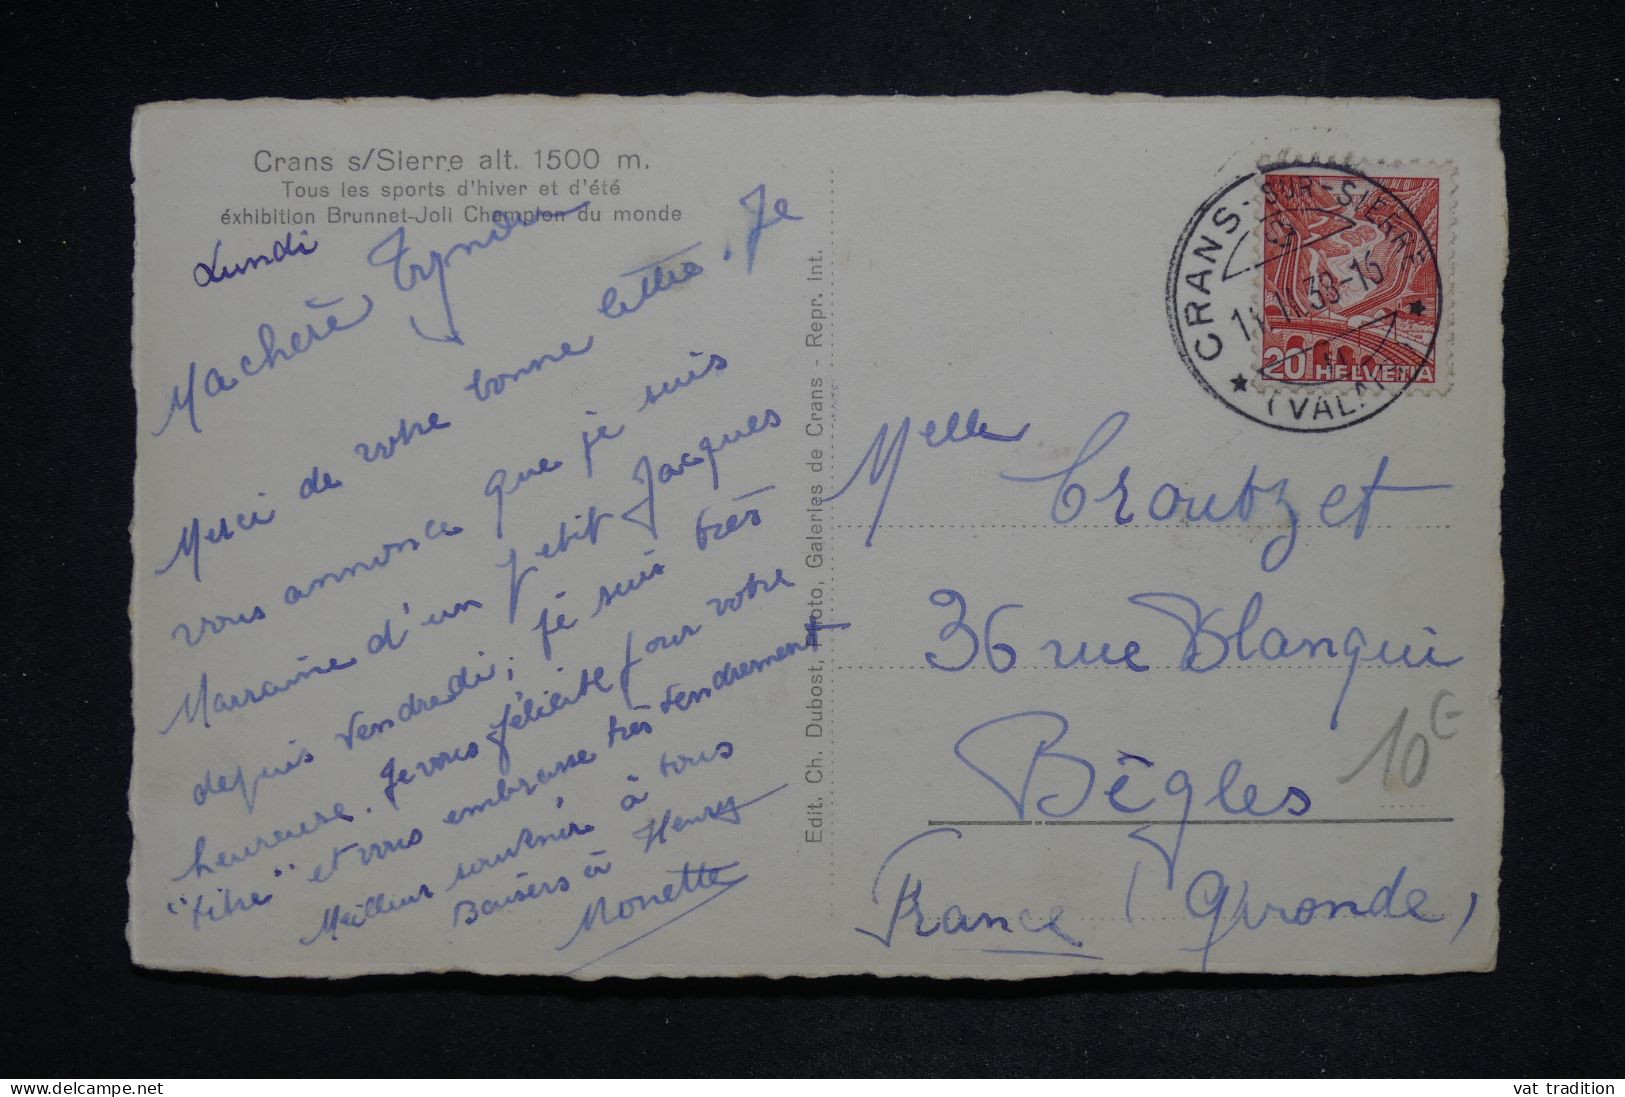 Crans s/Sierre alt. 1500 m.
Tous les sports d'hiver et d'été
éxhibition Brunnet-Joli Champion du monde
Lundi
Ma chère
Merci de votre bonne lettre. Je
vous annonce que je suis
Marraine d'un petit Jacques
depuis Vendredi; je suis très
heureuse. Je vous félicite pour votre
"titre" et vous embrasse très tendrement
Meilleur souvenir à tous
Baisers à Henry
Monette
Edit. Ch. Dubost, Photo, Galeries de Crans - Repr. int.
CRANS-SUR-SIERRE
(VALAIS)
20 HELVETIA
Melle Croutzet
36 rue Blanqui
Bègles
France (Gironde)
10 €
vat tradition
www.delcampe.net